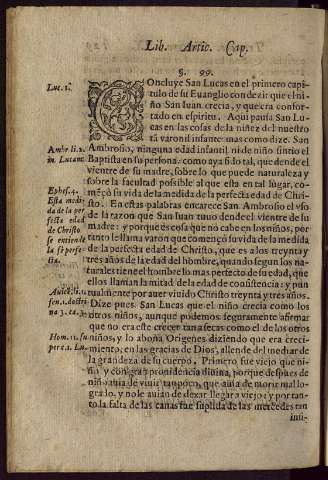 Lib. Artic. Cap.
§. 99.
Luc. 1.
COncluye San Lucas en el primero capi
tulo de su Euangelio con dezir que el ni
ño San Iuan crecia, y que era confor-
tado en espiritu. Aqui pausa San Lu-
cas en las cosas de la niñez del nuestro
rá varonil infante: mas como dize San
Ambrosio, ninguna edad infantil ni de niño sintio el
Baptista en su persona: como aya sido tal, que dende el
vientre de su madre, sobre lo que puede naturaleza y
sobre la facultad possible al que esta en tal lugar, co-
mẽço su vida de la medida de la perfecta edad de Chri-
sto. En estas palabras encarece San Ambrosio el vso
de la razon que San Iuan tuuo dende el vientre de su
madre: y porque es cosa que no cabe en los niños, por
tanto llama varon que començò su vida de la medida
de la perfecta edad de Christo, que es a los treynta y
tres años de la edad del hombre, quando segun los na-
turales tiene el hombre lo mas perfecto de su edad, que
ellos llaman la mitad de la edad de consistencia: y pun
tualmente por auer viuido Christo treynta y tres años.
Dize pues San Lucas que el niño crecia como los
otros niños, aunque podemos seguramente afirmar
que no era este crecer tan a secas como el de los otros
niños, y lo abona Origenes diziendo que era creci-
miento, en las gracias de Dios, allende del mediar de
la grandeza de su cuerpo. Primero fue viejo que ni-
ño y con gran prouidencia diuina, porque despues de
niño auia de viuir tampoco, que auia de morir mal lo
grado, y no le auian de dexar llegar a viejo: y por tan-
to la falta de las canas fue suplida de las mercedes tan
insi-
Ambr. li. 2.
in Lucam.
Ephes. 4.
Esta medi-
da de la per
fecta edad
de Christo
se entiende
la 5 perfe-
ctia.
Auic. li. 1.
fen. 1. doctri
na 3. ca. 3.
Hom. 11. su
per c. 1. Lu-